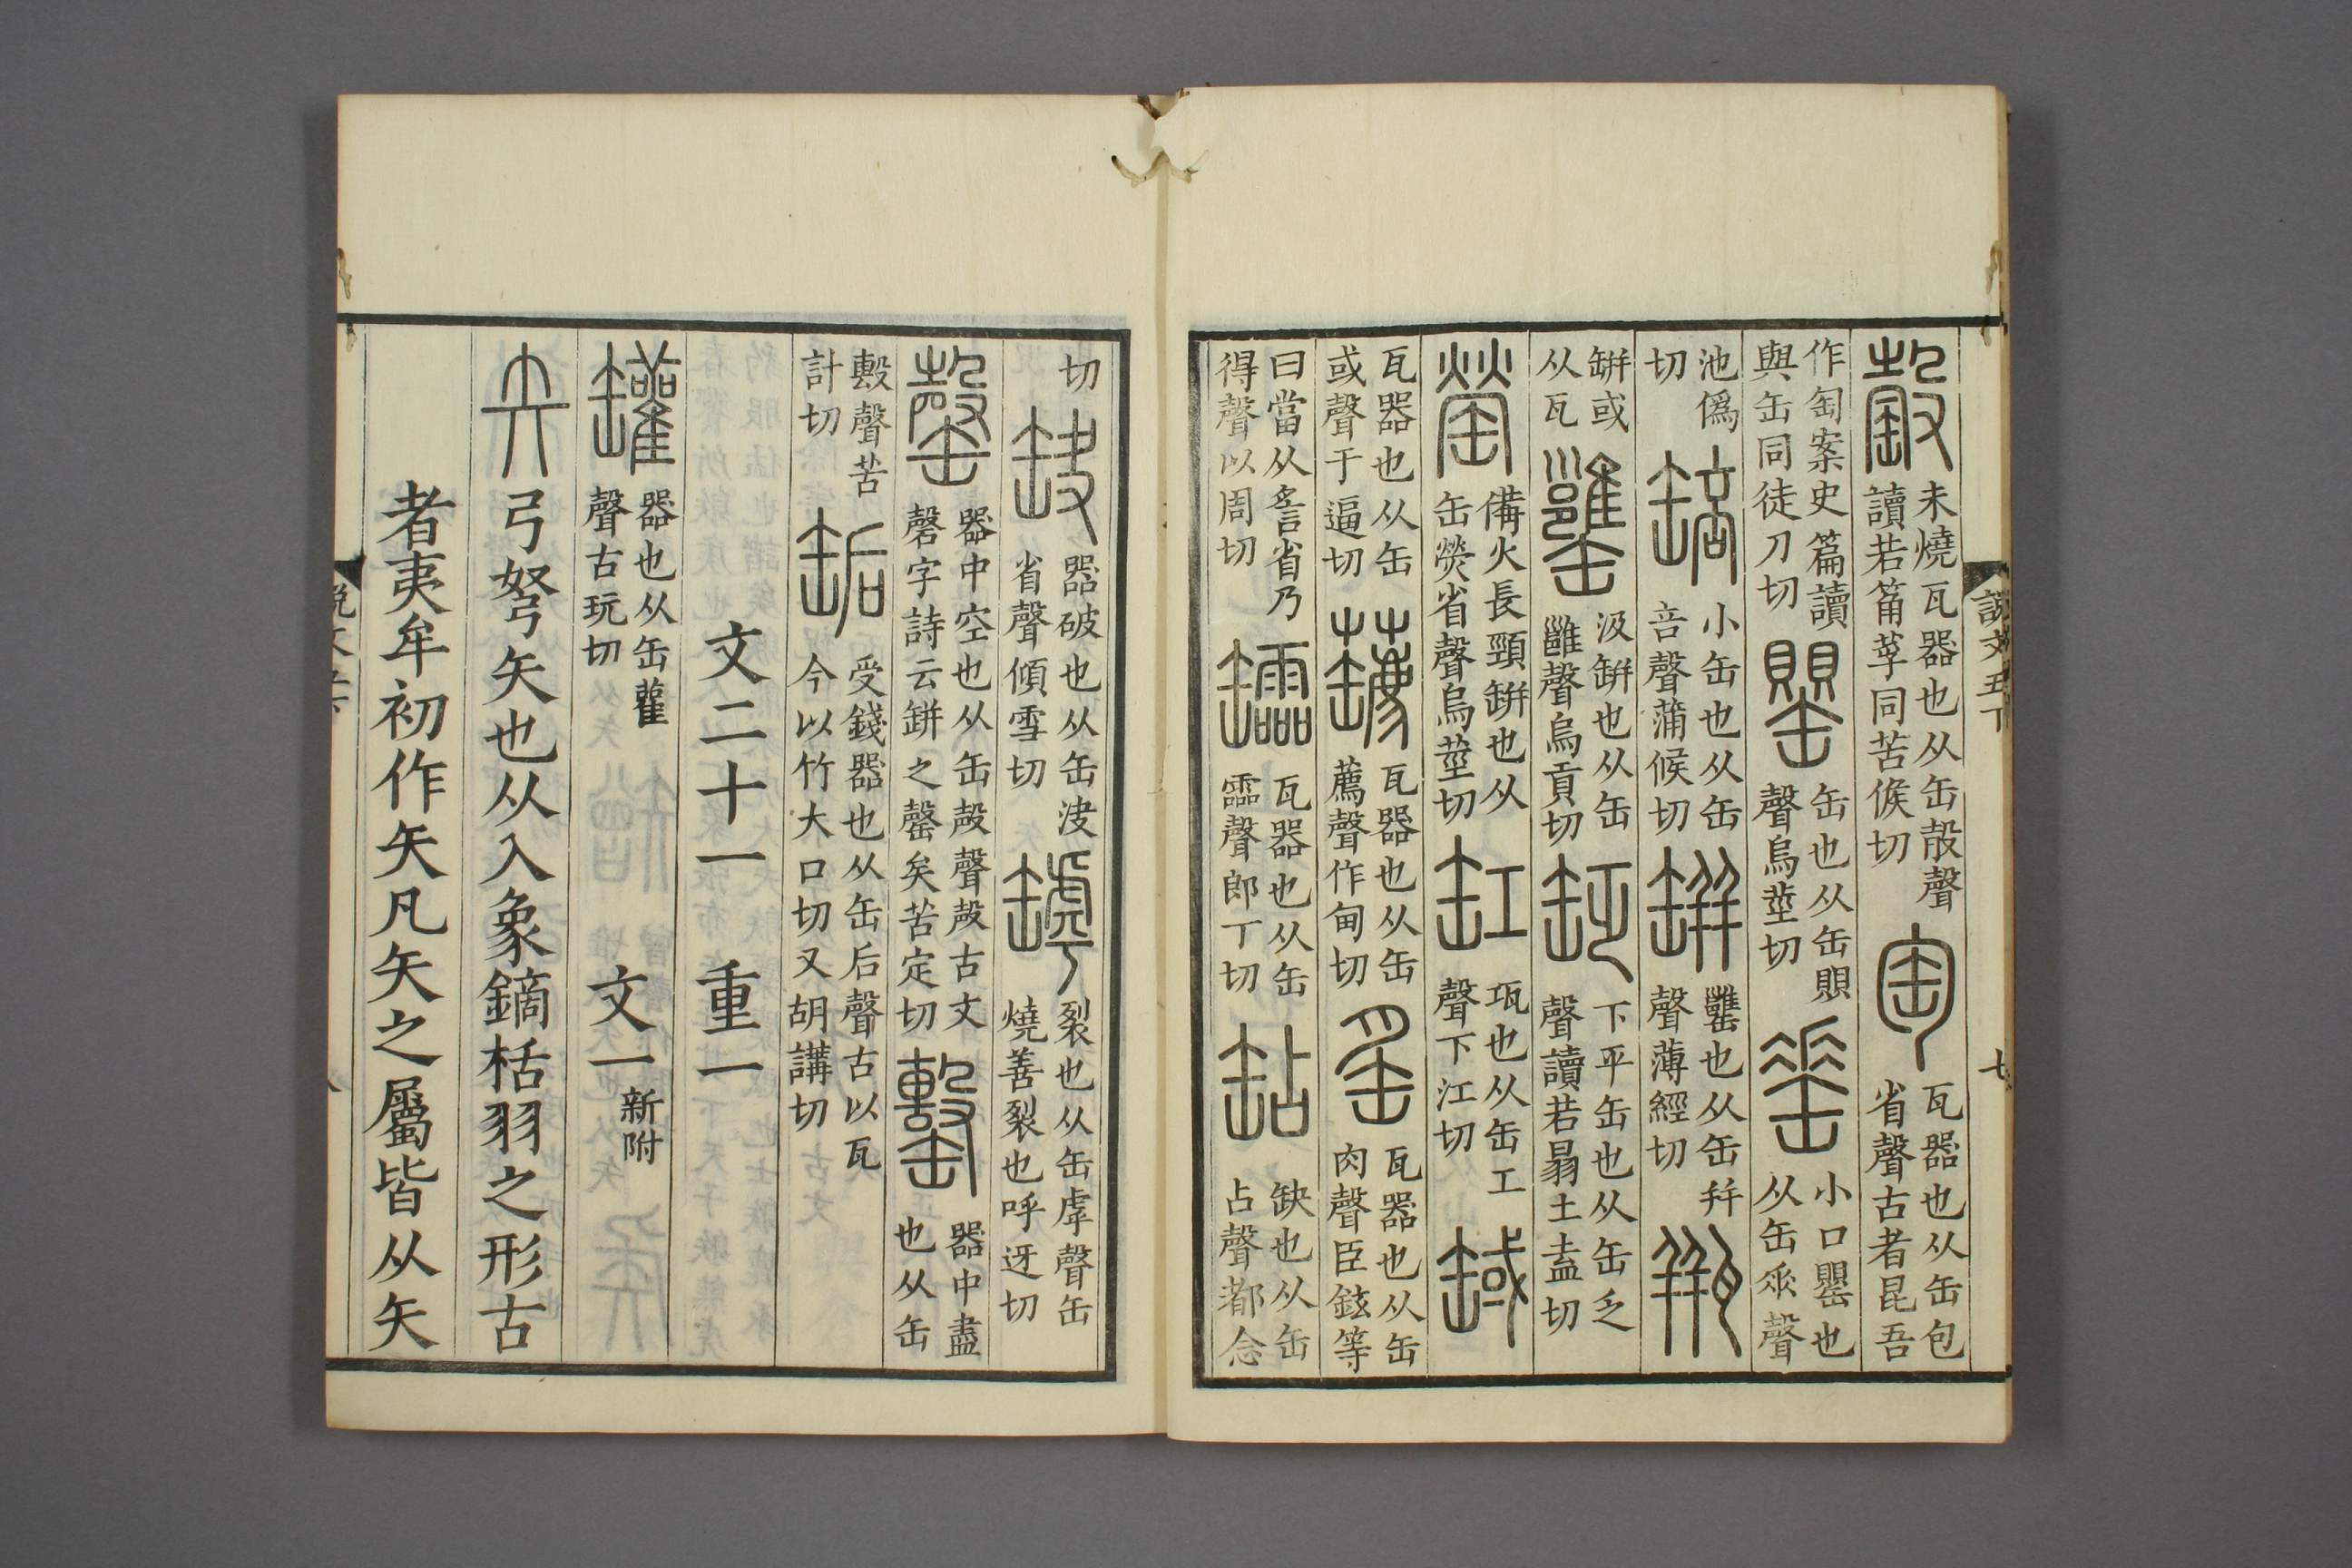 未燒瓦器也从缶㱿聲讀若筩莩同苦候切 匋 瓦器也从缶包省聲古者昆吾
作匋案史篇讀與缶同徒刀切 罌 缶也从缶賏聲烏莖切 小口罌也从缶𠂹聲
池僞切 小缶也从缶咅聲蒲候切 缾 罋也从缶幷聲薄經切 瓶
缾或从瓦 罋 汲缾也从缶雝聲烏貢切 下平缶也从缶乏聲讀若㬱土盍切
罃 備火長頸缾也从缶熒省聲烏莖切 缸 瓨也从缶工聲下江切 罭
瓦器也从缶或聲于逼切 瓦器也从缶薦聲作甸切 䍃 瓦器也从缶肉聲臣鉉等
曰當从䚻省乃得聲以周切 瓦器也从缶霝聲郎丁切 缺也从缶占聲都念
說文五下
七
切 缺 器破也从缶決省聲傾雪切 罅 裂也从缶虖聲缶燒善裂也呼迓切
罄 器中空也从缶殸聲殸古文磬字詩云缾之罄矣苦定切 罊 器中盡也从缶
毄聲苦計切 缿 受錢器也从缶后聲古以瓦今以竹大口切又胡講切
文二十一 重一
罐 器也从缶雚聲古玩切 文一 新附
矢 弓弩矢也从入象鏑栝羽之形古
者夷牟初作矢凡矢之屬皆从矢